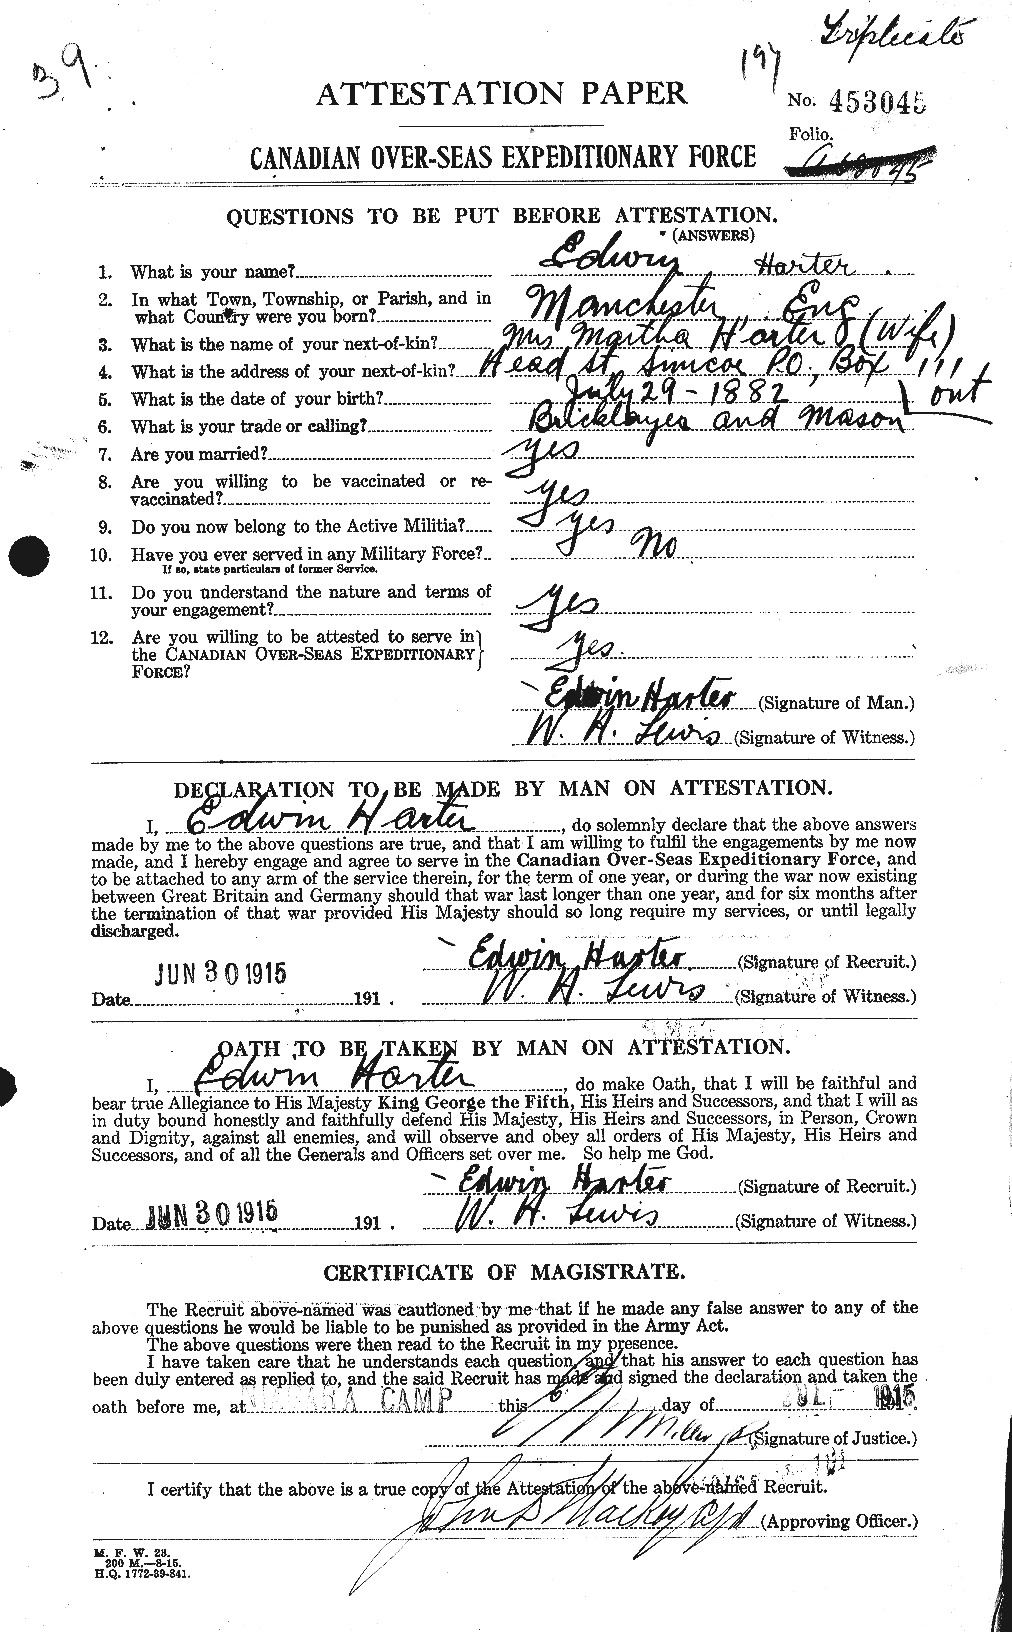 Triplicate
39
197
ATTESTATION PAPER
No. 453045
Folio.
CANADIAN OVER-SEAS EXPEDITIONARY FORCE
QUESTIONS TO BE PUT BEFORE ATTESTATION.
(ANSWERS)
1. What is your name? Edwin Harter.
2. In what Town, Township, or Parish, and in
what Country were you born? Manchester, Eng
3. What is the name of your next-of-kin? Mrs Martha Harter (Wife)
4. What is the address of your next-of-kin? Head St Simcoe P.O., Box 111
5. What is the date of your birth? July 29-1882 out
6. What is your trade or calling? Bricklayer and Mason
7. Are you married? yes
8. Are you willing to be vaccinated or re-
vaccinated? yes
9. Do you now belong to the Active Militia? yes
10. Have you ever served in any Military Force? No
If so, state particulars of former Service.
11. Do you understand the nature and terms of
your engagement? yes
12. Are you willing to be attested to serve in
the CANADIAN OVER-SEAS EXPEDITIONARY yes.
FORCE?
Edwin Harter (Signature of Man.)
W. H. Lewis (Signature of Witness.)
DECLARATION TO BE MADE BY MAN ON ATTESTATION.
I, Edwin Harter, do solemnly declare that the above answers
made by me to the above questions are true, and that I am willing to fulfil the engagements by me now
made, and I hereby engage and agree to serve in the Canadian Over-Seas Expeditionary Force, and
to be attached to any arm of the service therein, for the term of one year, or during the war now existing
between Great Britain and Germany should that war last longer than one year, and for six months after
the termination of that war provided His Majesty should so long require my services, or until legally
discharged.
Edwin Harter (Signature of Recruit.)
JUN 30 1915
Date 191. W. H. Lewis (Signature of Witness.)
OATH TO BE TAKEN BY MAN ON ATTESTATION.
I, Edwin Harter, do make Oath, that I will be faithful and
bear true Allegiance to His Majesty King George the Fifth, His Heirs and Successors, and that I will as
in duty bound honestly and faithfully defend His Majesty, His Heirs and Successors, in Person, Crown
and Dignity, against all enemies, and will observe and obey all orders of His Majesty, His Heirs and
Successors, and of all the Generals and Officers set over me. So help me God.
Edwin Harter (Signature of Recruit.)
Date JUN 30 1915 191. W. H. Lewis (Signature of Witness.)
CERTIFICATE OF MAGISTRATE.
The Recruit above-named was cautioned by me that if he made any false answer to any of the
above questions he would be liable to be punished as provided in the Army Act.
The above questions were then read to the Recruit in my presence.
I have taken care that he understands each question, and that his answer to each question has
been duly entered as replied to, and the said Recruit has made and signed the declaration and taken the
oath before me, at NIAGARA CAMP this day of JUL 1915.
(Signature of Justice.)
I certify that the above is a true copy of the Attestation of the above-named Recruit.
(Approving Officer.)
M. F. W. 23.
200 M.—8-15.
H.Q. 1772-39-841.